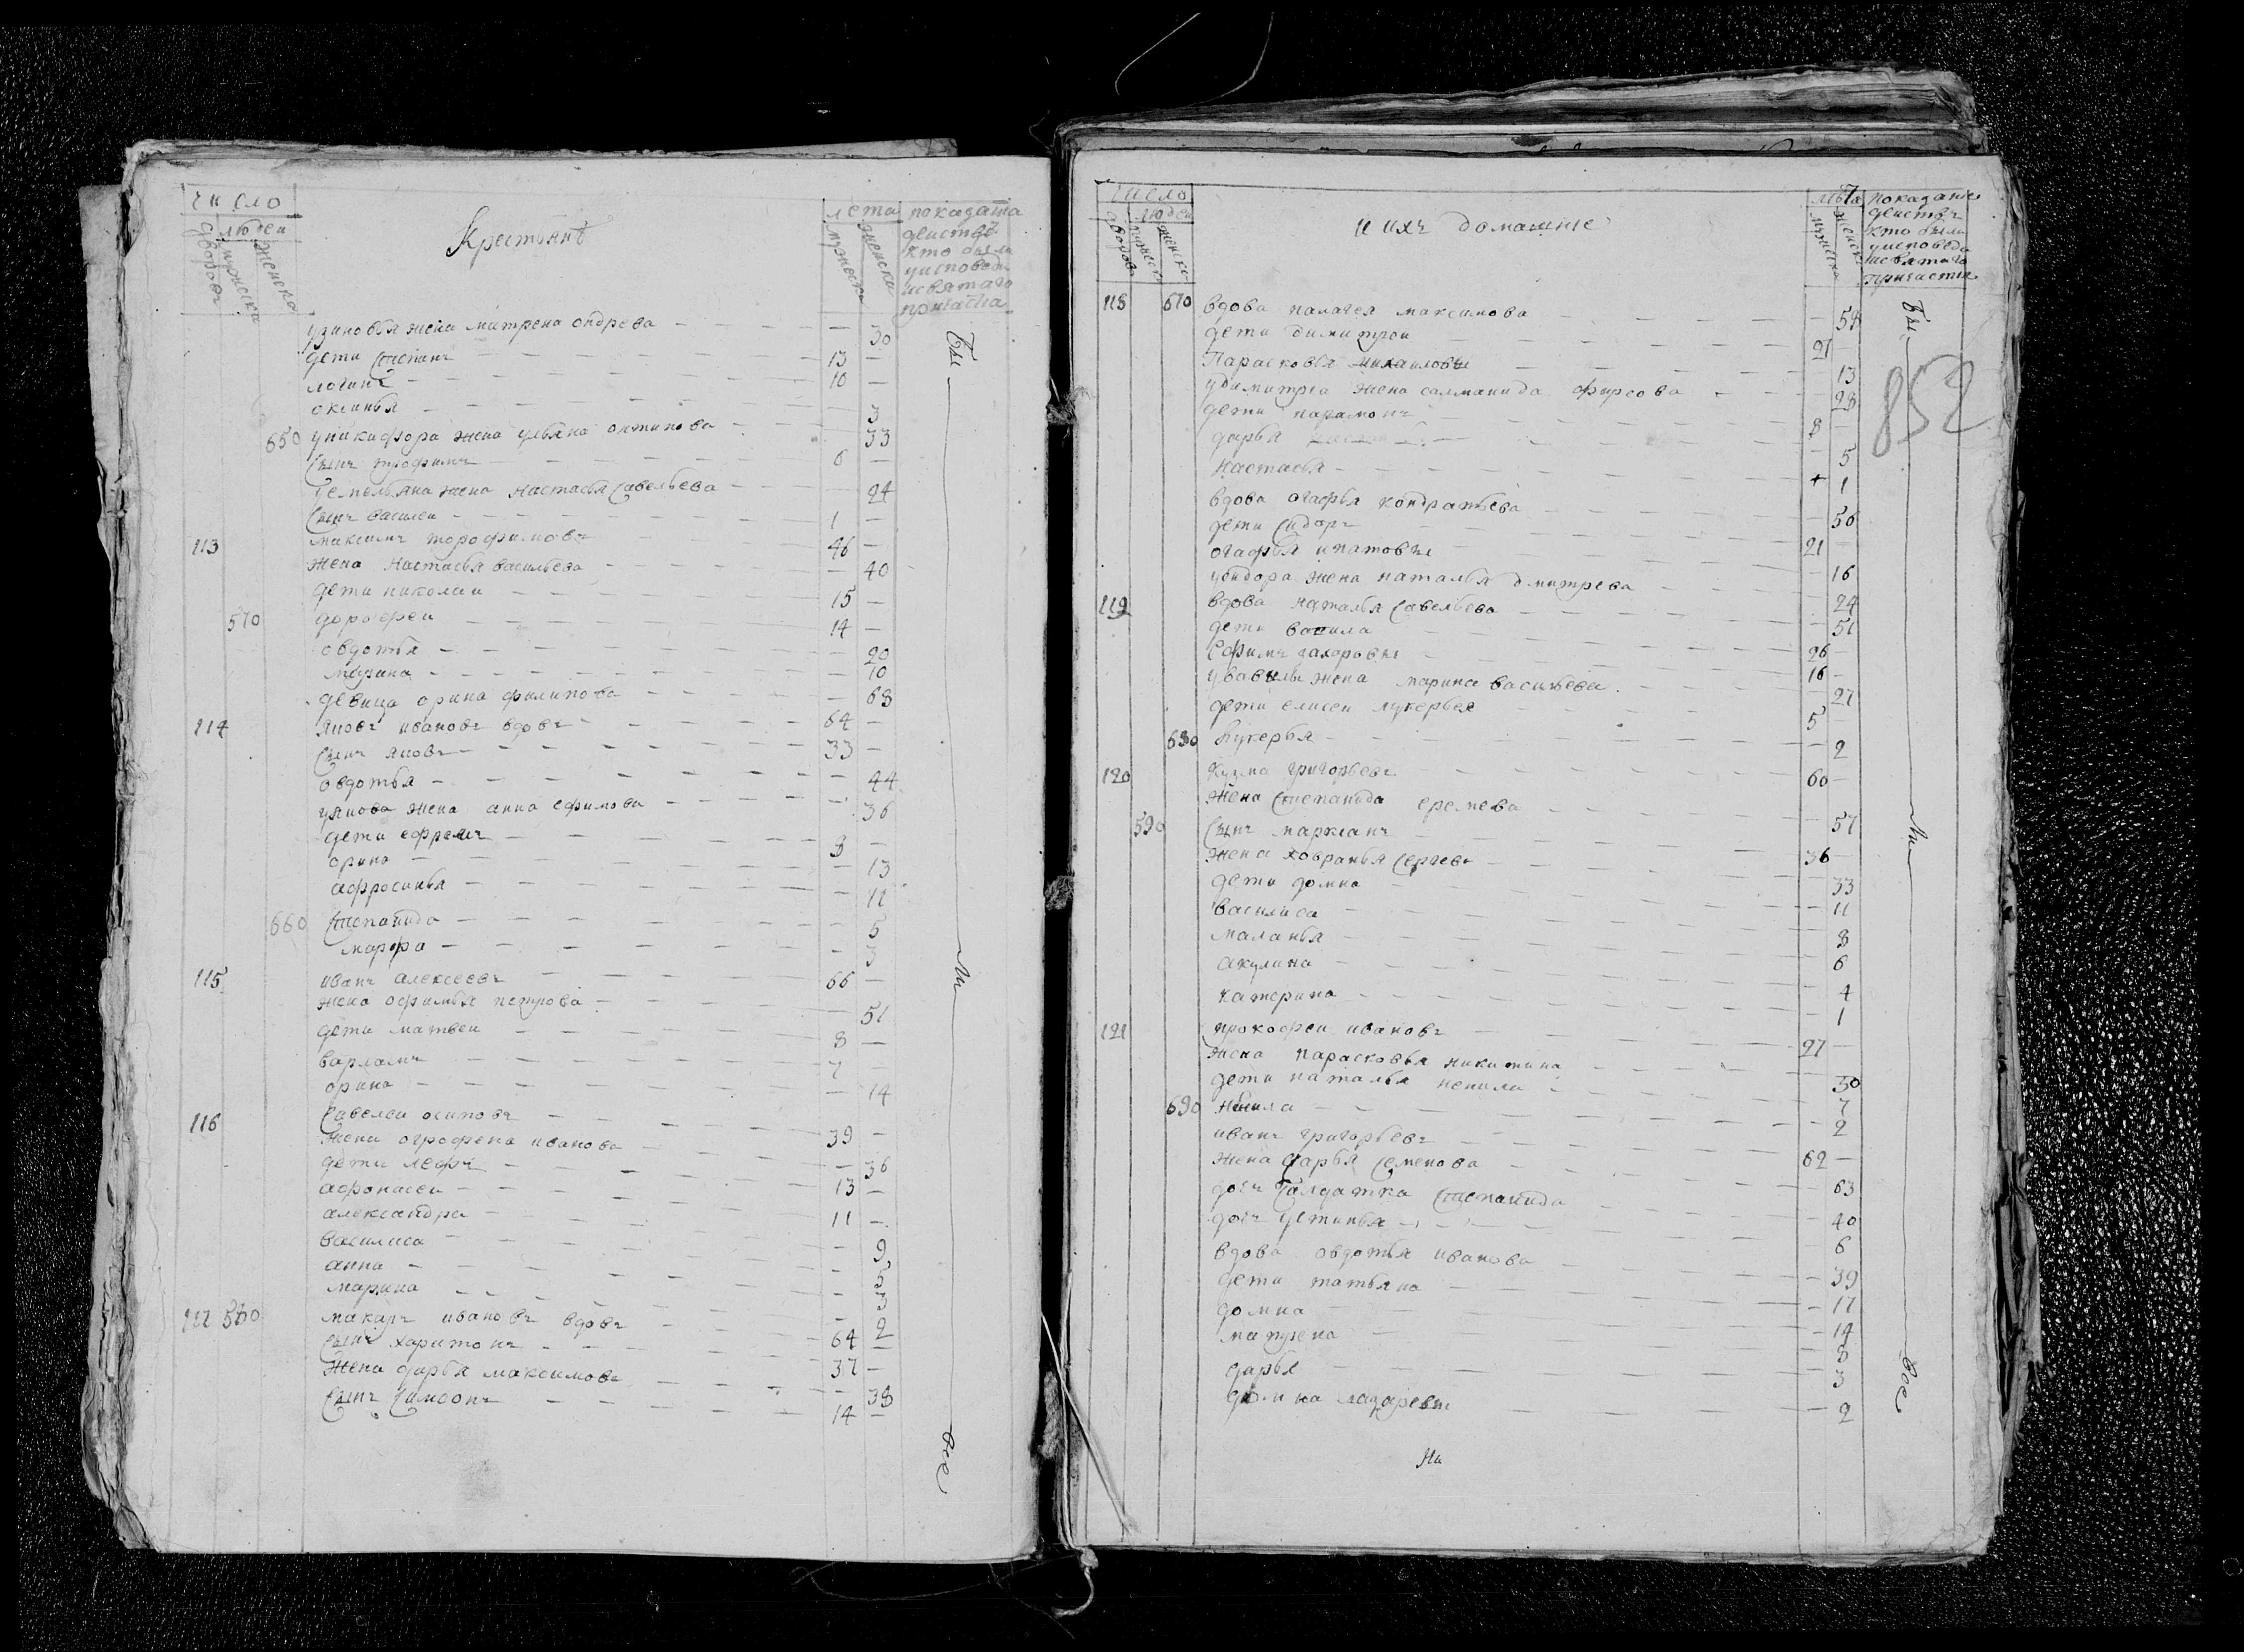 число
людеи
дворовъ
мужеска
женска
Крестьянѣ
лета
мужеска
женска
показата
деиствъ
кто были
уисповеди
исвятаго
причастиа
узиновья жена матрена ондрева — 30
дети степанъ 13 —
логинъ 10 —
оксинья — 3
650 уникифора жена ульяна онтипова — 33
сынъ трофимъ 6 —
уемельяна жена настасья савельева — 24
сынъ василеи 1 —
113 максимъ торофимовъ 46 —
жена настасья васильева — 40
дети николаи 15 —
570 дорофеи 14 —
овдотья — 20
— 10
девица орина филипова — 68
114 яковъ ивановъ вдовъ 64 —
сынъ яковъ 33 —
овдотья — 44
уякова жена анна ефимова — 36
дети ефремъ 8 —
орина — 13
афросинья — 11
660 степанида — 5
марфа — 3
115 иванъ алексеевъ 66 —
жена офимья петрова — 51
дети матвеи 8 —
варламъ 7 —
орина — 14
116 савелеи осиповъ 39 —
жена огрофена иванова — 36
дети 13 —
афонасеи 11 —
александра — 9
василиса — 5
анна — 3
марина — 2
117 580 макаръ ивановъ вдовъ 64 —
сынъ харитонъ 37 —
жена дарья максимова — 38
сынъ самсонъ 14 —
Бы
ли
все
число
людеи
дворовъ
мужеска
женска
и ихъ домашние
лѣта
мужеска
женска
показание
деиствъ
кто были
уисповеди
исвятаго
причастия
852
118 670 вдова палагея максимова — 54
дети димитреи 21 —
Парасковья михаиловы — 13
удимитрея жена саломанида фирсова — 28
дети парамонъ 8 —
дарья — 5
настасья + 1
вдова огафья кондратьева — 50
дети сидоръ 21 —
огафья ипатовы — 16
усидора жена наталья дмитрева — 24
119 вдова наталья савельева — 51
дети вавила 26 —
ефимъ захаровы 16 —
увавилы жена марина васильева — 27
дети елисеи лукерья 5 —
680 лукерья — 2
120 кузма григорьевъ 60 —
жена степанида еремева — 57
590 сынъ маркианъ 36 —
жена ховранья сергева — 33
дети домна — 11
василиса — 8
маланья — 6
акулина — 4
катерина — 1
121 прокофеи ивановъ 27 —
жена парасковья никитина — 30
дети наталья ненила — 7
690 ненила — 2
иванъ григорьевъ 62 —
жена дарья семенова — 63
дочь салдатка степанида — 40
дочь устинья — 6
вдова овдотья иванова — 39
дети татьяна — 17
домна — 14
матрена — 8
дарья — 3
домна лазаревы — 2
Бы
ли
все
На